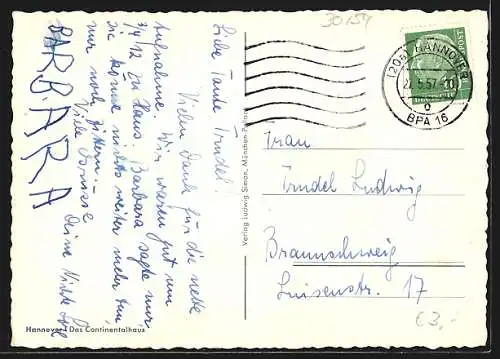 30154
(20a) HANNOVER
22.5.57-10
b
BPA 16
Liebe Tante Trudel!
Vielen Dank für die nette
Aufnahme. Wir waren gut um
3/4 12 zu Haus. Barbara sagte nur
sie könne nichts weiter mehr tun,
nur noch zittern.
Viele Grüsse
Deine Nichte
BARBARA
Frau
Trudel Ludwig
Braunschweig
Luisenstr. 17
€3,-
Verlag Ludwig Simon, München-Pullach
Hannover / Das Continentalhaus